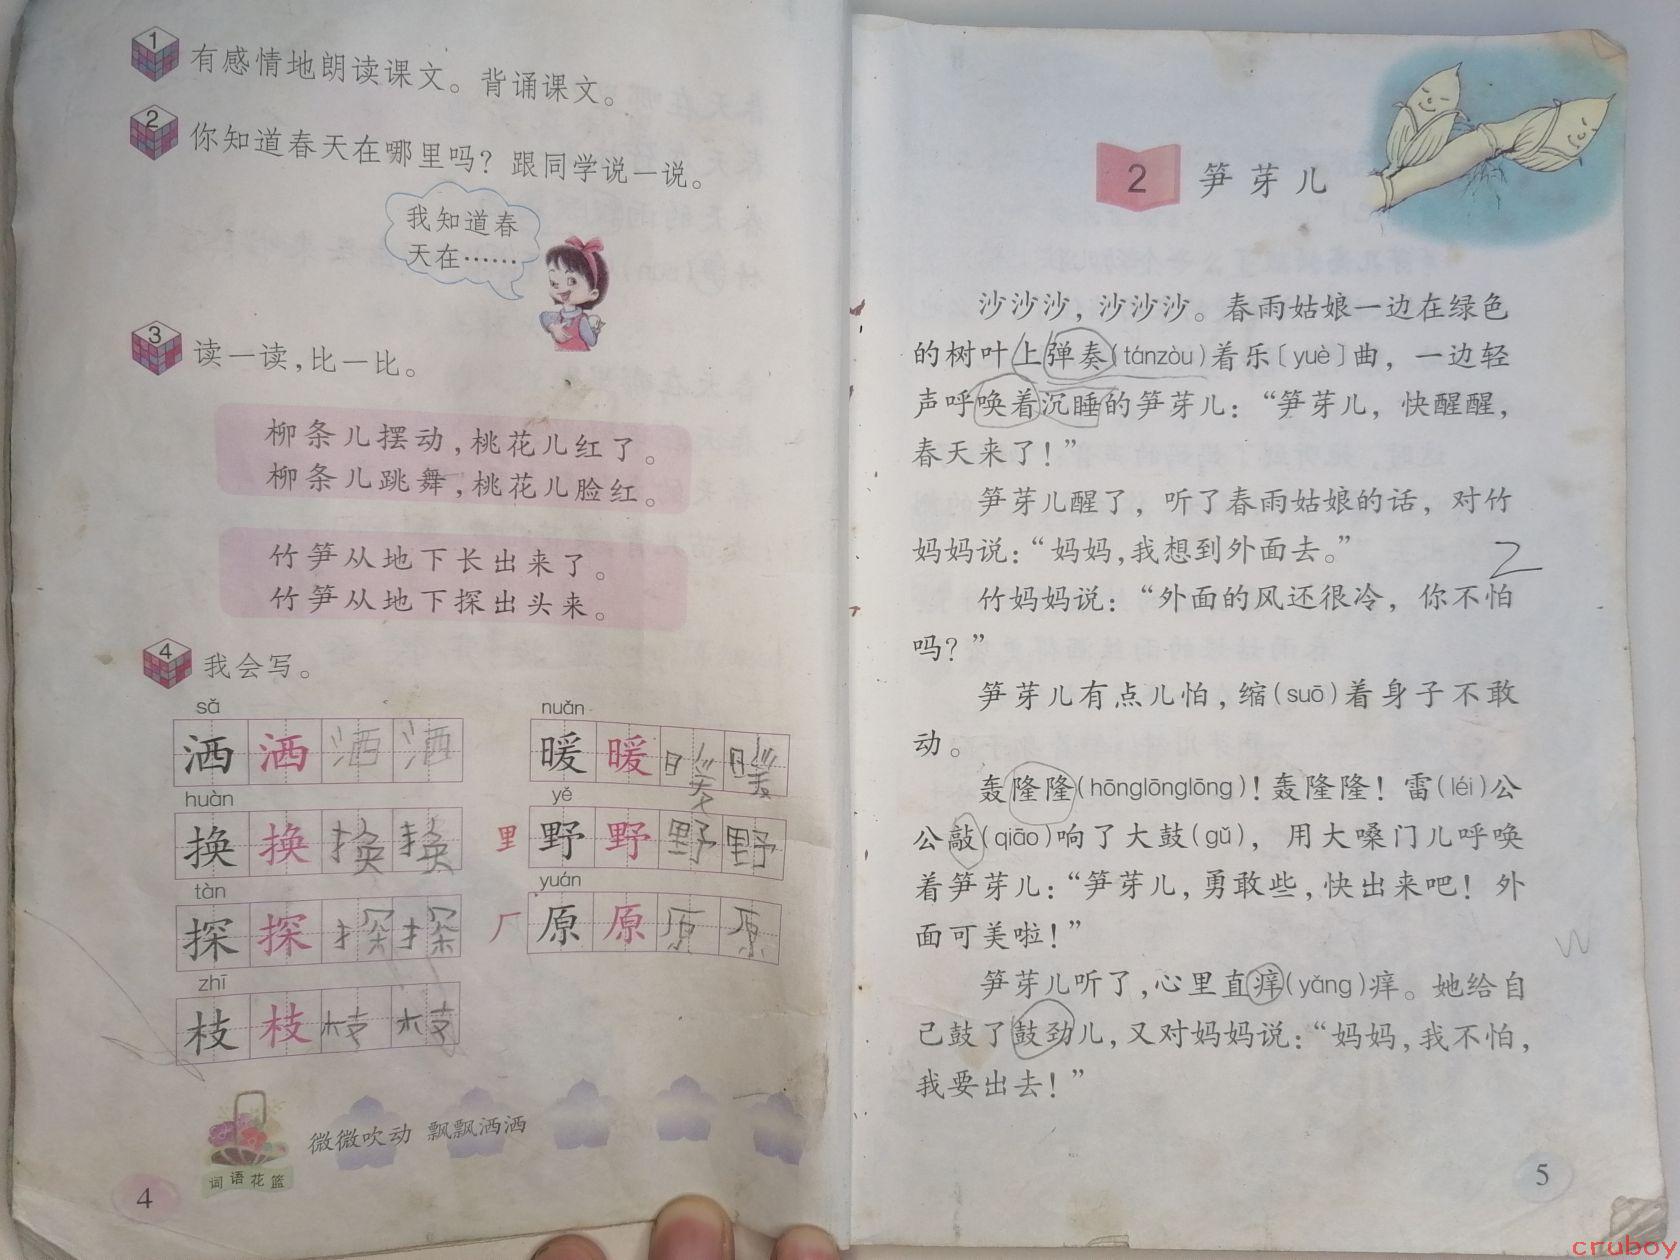 1 有感情地朗读课文。背诵课文。
2 你知道春天在哪里吗？跟同学说一说。
我知道春
天在……
3 读一读，比一比。
柳条儿摆动，桃花儿红了。
柳条儿跳舞，桃花儿脸红。
竹笋从地下长出来了。
竹笋从地下探出头来。
4 我会写。
sǎ nuǎn
洒 洒 洒 洒 暖 暖 暖 暖
huàn yě
换 换 换 换 里 野 野 野 野
tàn yuán
探 探 探 探 厂 原 原 原 原
zhī
枝 枝 枝 枝
微微吹动 飘飘洒洒
词语花篮
4
2 笋芽儿
沙沙沙，沙沙沙。春雨姑娘一边在绿色
的树叶上弹奏(tánzòu)着乐〔yuè〕曲，一边轻
声呼唤着沉睡的笋芽儿：“笋芽儿，快醒醒，
春天来了！”
笋芽儿醒了，听了春雨姑娘的话，对竹
妈妈说：“妈妈，我想到外面去。”
2
竹妈妈说：“外面的风还很冷，你不怕
吗？”
笋芽儿有点儿怕，缩(suō)着身子不敢
动。
轰隆隆(hōnglōnglōng)！轰隆隆！雷(léi)公
公敲(qiāo)响了大鼓(gǔ)，用大嗓门儿呼唤
着笋芽儿：“笋芽儿，勇敢些，快出来吧！外
面可美啦！”
笋芽儿听了，心里直痒(yǎng)痒。她给自
己鼓了鼓劲儿，又对妈妈说：“妈妈，我不怕，
我要出去！”
5
cruboy